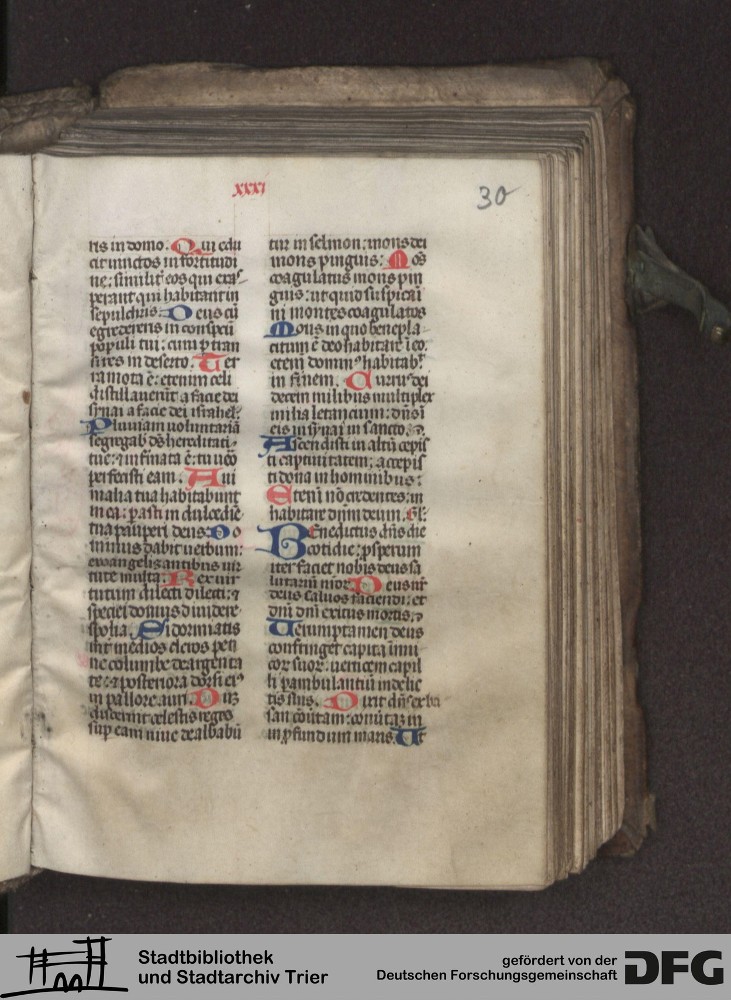 xxxi
30
ris in domo. Qui edu
cit vinctos in fortitudi
ne: similit eos qui exas
perant qui habitant in
sepulchris. Deus cū
egredereris in conspcū
populi tui: cum ptran
sires in deserto. Ter
ra mota ē: etenim celi
distillauerūt a facie dei
sinai a facie dei israhel.
Pluuiam voluntariā
segregab ds hereditati
tue: ⁊ infirmata ē: tu uo
perfecisti eam. Ani
malia tua habitabunt
in ea: parasti in dulcedīe
tua pauperi deus. Do
minus dabit uerbum:
ewangelisantibus uir
tute multa. Rex uir
tutum dilecti dilecti: ⁊
speciei domus diuidere
spolia. Si dormiatis
int medios cleros pen
ne columbe deargenta
te: ⁊ posteriora dorsi ei
in pallore auri. Dum
discernit celestis reges
sup eam niue dealbabū
tur in selmon: mons dei
mons pinguis: Mōs
coagulatus mons pin
guis: ut quid suspicaī
ni montes coagulatos
Mons in quo benepla
citum ē deo habitare ī eo:
etem dominꝰ habitabt
in finem. Currus dei
decem milibus multiplex
milia letancium: dn̄s ī
eis in synai in sancto.
Ascendisti in altū cepis
ti captiuitatem: accepis
ti dona in hominibus:
Etenī nō credentes: in
habitare dnm deum. Gl.
Benedictus dn̄s die
cotidie: psperum
iter faciet nobis deus sa
lutariū nror. Deus nr
deus saluos faciendi: et
dnī dnī exitus mortis.
Verumptamen deus
confringet capita inmi
cor suor: uerticem capil
li pambulantiū in delic
tis suis. Dixit dn̄s ex ba
san cōuertam: conūtā in
in pfundum maris. Ut
Stadtbibliothek
und Stadtarchiv Trier
gefördert von der
Deutschen Forschungsgemeinschaft
DFG